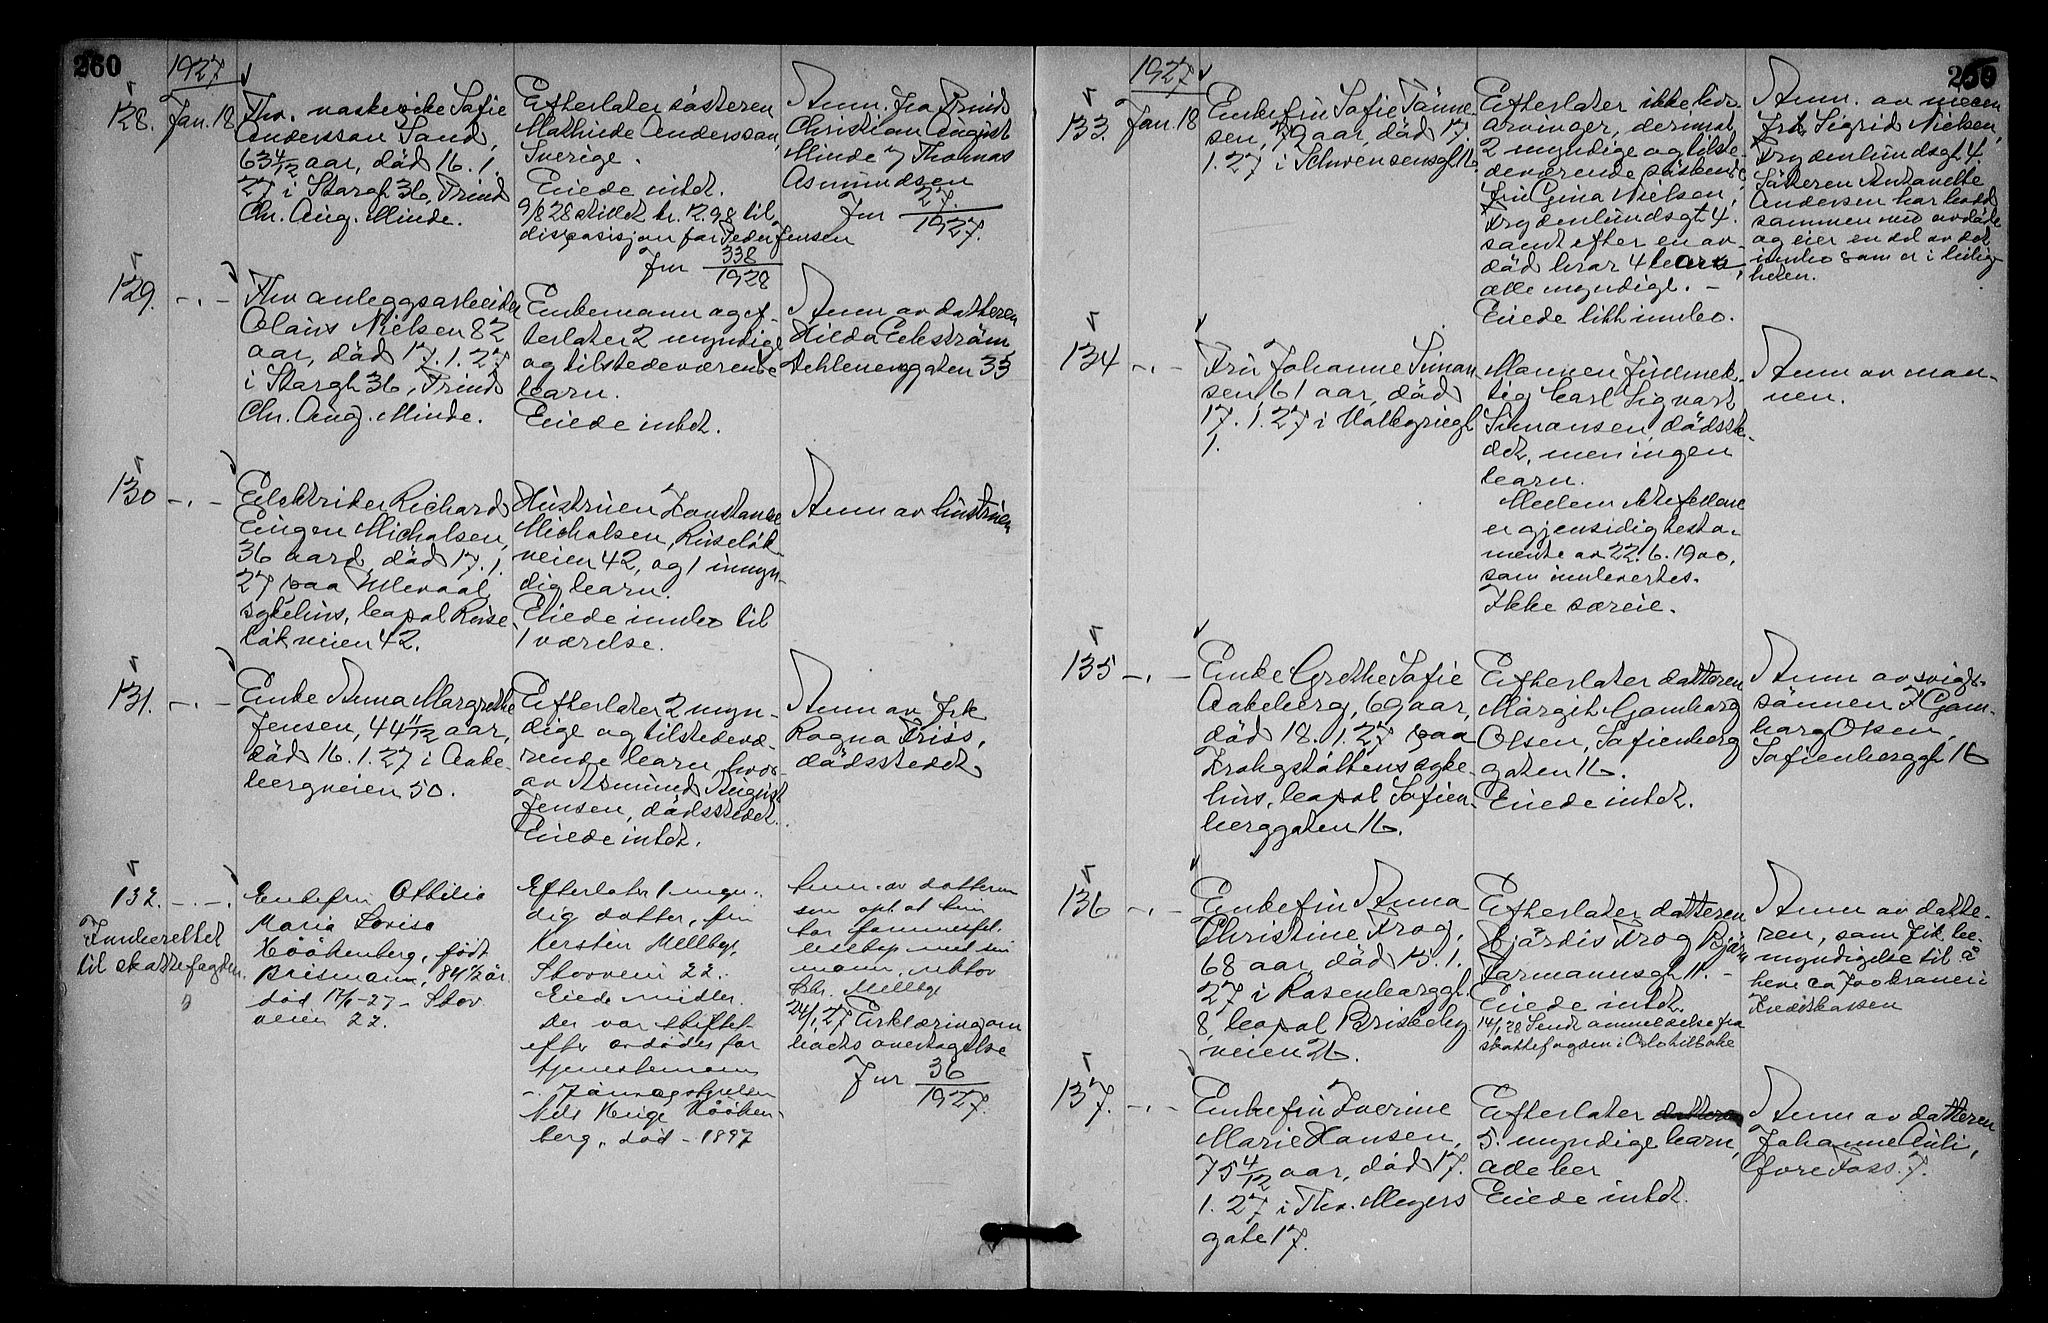 260
1927
128. Jan. 18
Fhv. vaskerske Sofie
Andersson Sand,
63 4/12 aar, död 16. 1.
27 i Storgt 36, Trind
Chr. Aug. Minde.
Efterlater sösteren
Mathilde Andersson,
Sverige.
Eiede intet.
9/8 28 stillet kr. 12.98 til
disposisjon for Peder Jensen
Jnr 338/1928
Anm. fra Trind
Christian August
Minde v Thomas
Asmundsen
Jnr 27/1927.
129. -.-
Fhv anleggsarbeider
Olaus Nielsen 82
aar, död 17. 1. 27
i Storgt 36, Trind
Chr. Aug. Minde.
Enkemann og ef-
terlater 2 myndige
og tilstedeværende
barn.
Eiede intet.
Anm av datteren
Hilda Ekström
33
130 -.-
Elektriker Richard
Eugen Micholsen,
36 aar, död 17. 1.
27 paa Ullevaal
sykehus, bopæl Ruse-
lökveien 42.
Hustruen Konstanse
Micholsen, Ruselök-
veien 42, og 1 umyn-
dig barn.
Eiede innbo til
1 værelse.
Anm av hustruen
131. -.-
Enke Anna Margrethe
Jensen, 44 11/12 aar,
död 16. 1. 27 i Aake-
bergveien 50.
Efterlater 2 myn-
dige og tilstedevæ-
rende barn, hvor-
av Asmund August
Jensen, dödsstedet.
Eiede intet.
Anm av frk
Ragna Friss,
dödsstedet
132. -.-
Innberettet
til skattefogden.
Enkefru Othilie
Maria Lovise
Höökenberg, født
Brismann, 84 1/2 år
død 17/1-27 - Skov
veien 22.
Efterlater 1 myn-
dig datter, fru
Kersten Mellbye,
Skovveien 22.
Eiede midler.
Der var skiftet
efter avdødes for
Nils Herige Hööken-
berg, død - 1897
Anm. av datteren
som opl. at hun
har
med sin
mann, rektor
Chr. Mellbye
24/1 27 Erklæring om
boets overtagelse
Jnr 36/1927.
1927
133 Jan. 18
Enkefru Sofie Tänne-
sen, 72 aar, död 17.
1. 27 i Schwensensgt 16
Efterlater ikke livs-
arvinger, derimot
2 myndige og tilste-
deværende söskend:
Fru Gina Nielsen,
Frydenlundsgt 4.
samt efter en av-
död bror 4 barn,
alle myndige. -
Eiede litt innbo.
Anm. av niecen
frk Sigrid Nielsen,
Frydenlundsgt 4.
Søsteren Antonette
Andersen har bodd
sammen med avdøde
og eier en del av det
innbo som er i leilig-
heten.
134 -.-
Fru Johanne Siman-
sen, 61 aar, död
17. 1. 27 i Kalkgriegt
1.
Mannen
Carl Sigvart
Simansen, dödsste-
det, men ingen
barn.
Mellem ektefellene
er gjensidig testa-
mente av 22. 6. 1900,
som innlevertes.
Ikke særeie.
Anm av man-
nen.
135 -.-
Enke Grethe Sofie
Aakeberg, 69 aar,
död 18. 1. 27 paa
Krohgstöttens syke-
hus, bopæl Sofien-
berggaten 16.
Efterlater datteren
Margit Gomborg
Olsen, Sofienberg
gaten 16.
Eiede intet.
Anm av svigr-
sønnen F Gom-
borg Olsen,
Sofienberggt 16
136 -.-
Enkefru Anna
Christine Krog,
68 aar, död 15. 1.
27 i Rosenborggt.
8, bopæl Briskeby
veien 26.
Efterlater datteren
Hjördis Krog Bjärn
Farmannsgt 11. -
Eiede intet.
14/1 28 Sendt anmeldelse fra
skattefogden i Oslo tilbake
Anm av datte-
ren, som fik be-
myndigelse til å
heve ca 700 kroner i
Kreditkassen
137. -.-
Enkefru Iverine
Marie Hansen,
75 4/12 aar, död 17.
1. 27 i Thv. Meyers
gate 17.
Efterlater datteren
5. myndige barn,
alle her
Eiede intet.
Anm av datteren
Johanne Auli,
Övre Foss. 7.